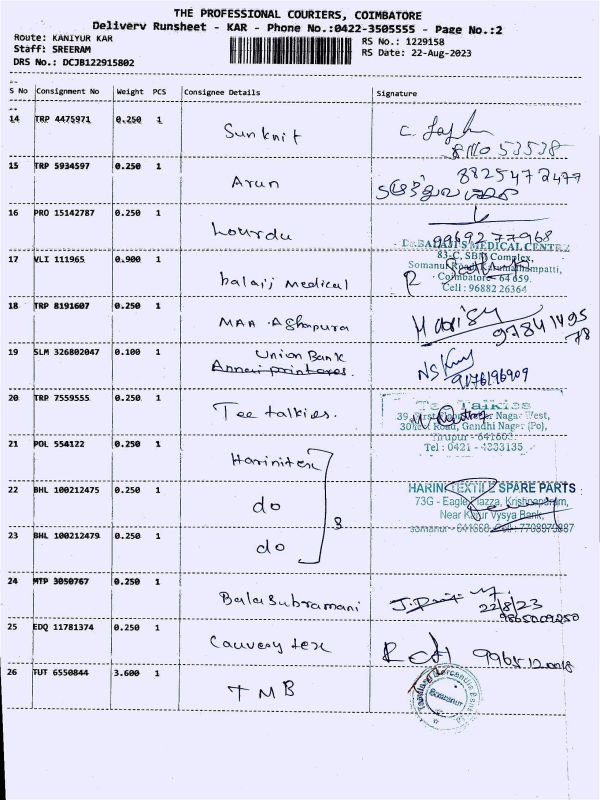 THE PROFESSIONAL COURIERS, COIMBATORE
Delivery Runsheet - KAR - Phone No.:0422-3505555 - Page No.:2
Route: KANIYUR KAR RS No.: 1229158
Staff: SREERAM RS Date: 22-Aug-2023
DRS No.: DCJB122915802
S No Consignment No Weight PCS Consignee Details Signature
14 TRP 4475971 0.250 1 Sunknit
53538
15 TRP 5934597 0.250 1 Arun
8825472477
16 PRO 15142787 0.250 1 Lourdu
9969277968
17 VLI 111965 0.900 1 balaij medical
Dr.BALAJI'S MEDICAL CENTRE
83-C, SBN Complex,
Coimbatore - 64 659.
Cell : 96882 26364
18 TRP 8191607 0.250 1 MAA Aghapura
97841495
78
19 SLM 326802047 0.100 1 Union Bank
9176196909
20 TRP 7559555 1 Tee talkies.
0.250
Tee Talkies
Road, Gandhi Nagar (Po),
Tirupur - 641603.
Tel : 0421 - 4333135
21 POL 554122 0.250 1 Harinitex
22 BHL 100212475 0.250 1 do
HARINI TEXTILE SPARE PARTS
73G - Eagle Plazza, Krishnapuram,
Near Karur Vysya Bank,
23 BHL 100212479 0.250 1 do
24 MTP 3050767 0.250 1 Balasubramani
22/8/23
25 EDQ 11781374 0.250 1 Cauvery tex
26 TUT 6550844 3.600 1 TMB